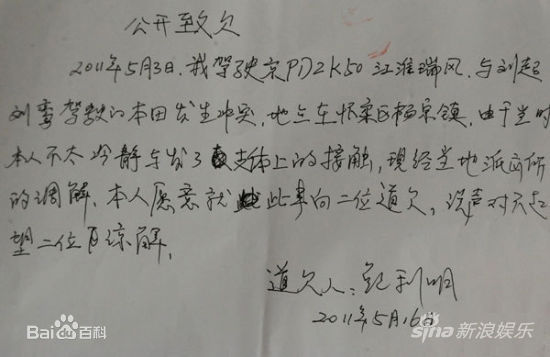 公开致欠
2011年5月3日.我驾驶京PD2K50江淮瑞风.与刘超
刘 驾驶的本田发生冲突,地点在怀柔区杨宋镇,由于当时
本人不太冷静 发了 支体上的接触,现经当地派出所
的调解.本人愿意就此事向二位道欠,说声对不起
望二位 谅解.
道欠人: 利明
2011年5月16日
Baidu百科
sina新浪娱乐